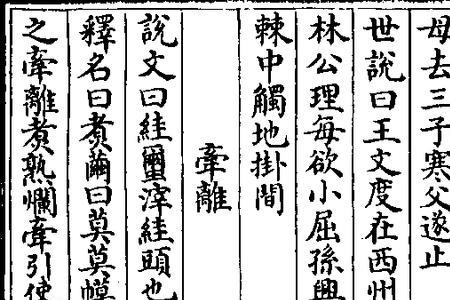 母去三子寒父遂止
世說曰王文度在西州
林公理每欲小屈孫興
棘中觸地掛閡
牽離
說文曰絓𧖅滓絓頭也
釋名曰煑繭曰莫莫幙
之牽離煑熟爛牽引使